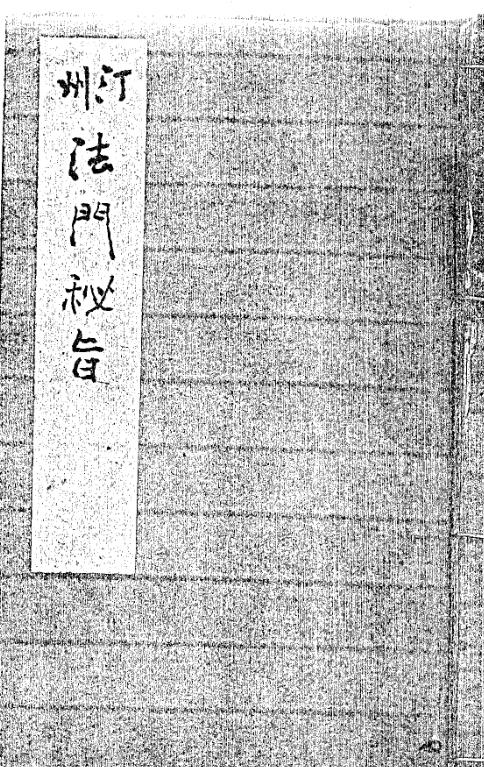 汀州
法門秘旨